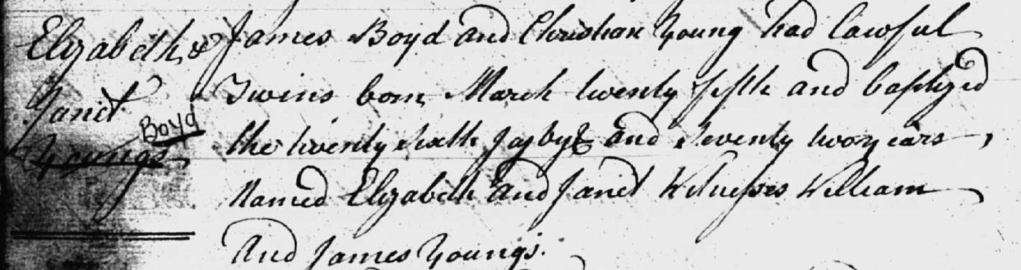 Elizabeth &
Janet
Boyd
Youngs
James Boyd and Christian Young had lawful
Twins born March twenty fifth and baptized
the twenty sixth and seventy two years,
Named Elizabeth and Janet Witnesses William
And James Youngs.